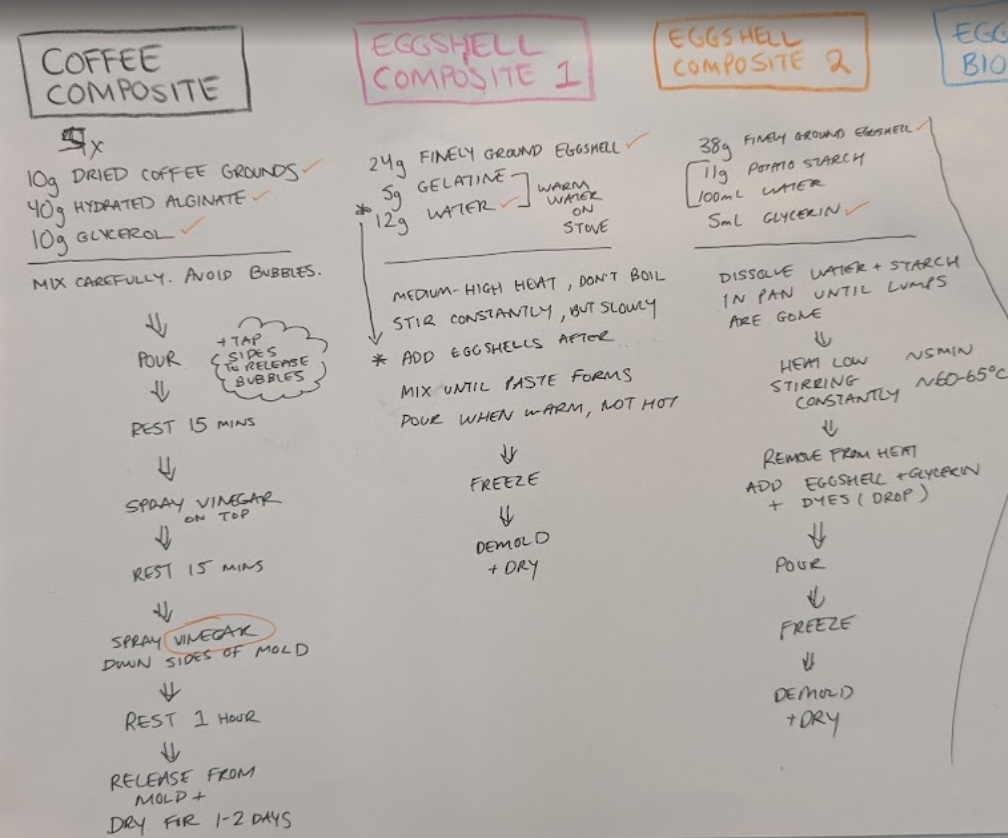 COFFEE
COMPOSITE
x
10g DRIED COFFEE GROUNDS ✓
40g HYDRATED ALGINATE ✓
10g GLYCEROL ✓
MIX CAREFULLY. AVOID BUBBLES.
⇓
POUR
+ TAP
SIDES
TO RELEASE
BUBBLES
⇓
REST 15 MINS
⇓
SPRAY VINEGAR
ON TOP
⇓
REST 15 MINS
⇓
SPRAY VINEGAR
DOWN SIDES OF MOLD
⇓
REST 1 HOUR
⇓
RELEASE FROM
MOLD +
DRY FOR 1-2 DAYS
EGGSHELL
COMPOSITE 1
24g FINELY GROUND EGGSHELL ✓
5g GELATINE
* 12g WATER ✓
WARM
WATER
ON
STOVE
MEDIUM-HIGH HEAT, DON'T BOIL
STIR CONSTANTLY, BUT SLOWLY
* ADD EGGSHELLS AFTER
MIX UNTIL PASTE FORMS
POUR WHEN WARM, NOT HOT
⇓
FREEZE
⇓
DEMOLD
+ DRY
EGGSHELL
COMPOSITE 2
38g FINELY GROUND EGGSHELL ✓
11g POTATO STARCH
100mL WATER
5mL GLYCERIN ✓
DISSOLVE WATER + STARCH
IN PAN UNTIL LUMPS
ARE GONE
⇓
HEAT LOW ~5MIN
STIRRING
CONSTANTLY ~60-65°C
⇓
REMOVE FROM HEAT
ADD EGGSHELL + GLYCERIN
+ DYES (DROP)
⇓
POUR
⇓
FREEZE
⇓
DEMOLD
+ DRY
EGG
BIO